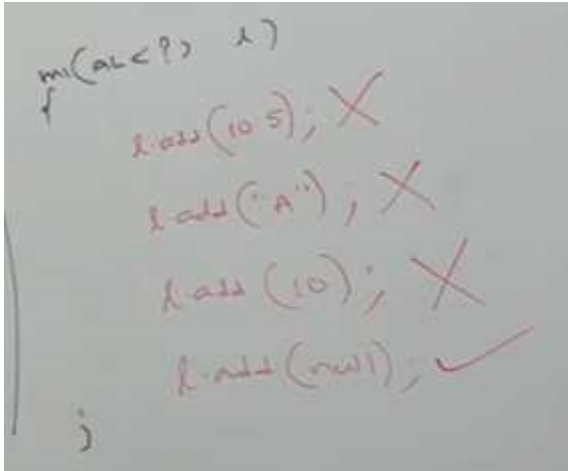 m1(AL<?> l)
{
l.add(10.5); X
l.add("A"); X
l.add(10); X
l.add(null); ✓
}